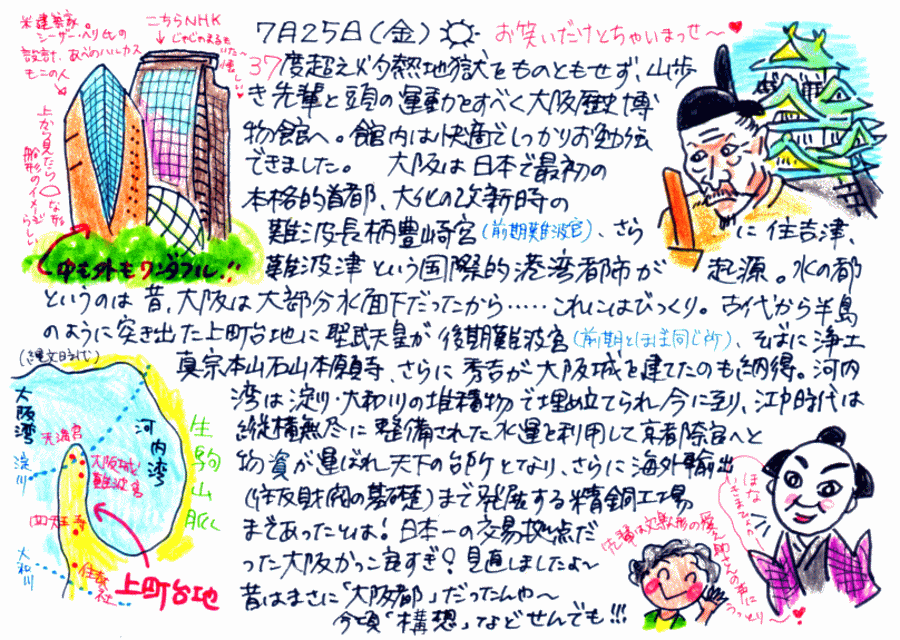 7月25日(金)
お笑いだけとちゃいまっせ～♥
37度超え火夕熱地獄をものともせず、山歩
き先輩と頭の運動をすべく大阪歴史博
物館へ。館内は快適でしっかりお勉強
できました。 大阪は日本で最初の
本格的首都、大化の改新時の
難波長柄豊崎宮(前期難波宮)、さらに住吉津、
難波津という国際的港湾都市が起源。水の都
というのは昔、大阪は大部分水面下だったから……これにはびっくり。古代から半島
のように突き出た上町台地に聖武天皇が後期難波宮(前期とほぼ同じ所)、そばに浄土
真宗本山石山本願寺、さらに秀吉が大阪城を建てたのも納得。河内
湾は淀川・大和川の堆積物で埋め立てられ今に至り、江戸時代は
縦横無尽に整備された水運を利用して京都奈良へと
物資が運ばれ天下の台所となり、さらに海外輸出
(住友財閥の基礎)まで発展する精銅工場
まであったとは!日本一の交易拠点だ
った大阪かっこ良すぎ?見直しましたよ～
昔はまさに「大阪都」だったんや～
今頃「構想」などせんでも!!!
米建築家。
シーザー・ペリ氏の
設計。あべのハルカス
もこの人
こちらNHK
じゃじゃまるも
いた～
上から見たら な形
船形のイメージらしい
中も外もワンダフル!!
(縄文時代)
大阪湾
河内湾
生駒山脈
天満宮
淀川
大阪城
難波宮
四天王寺
大和川
住吉大社
上町台地
ほな
いきまひょか